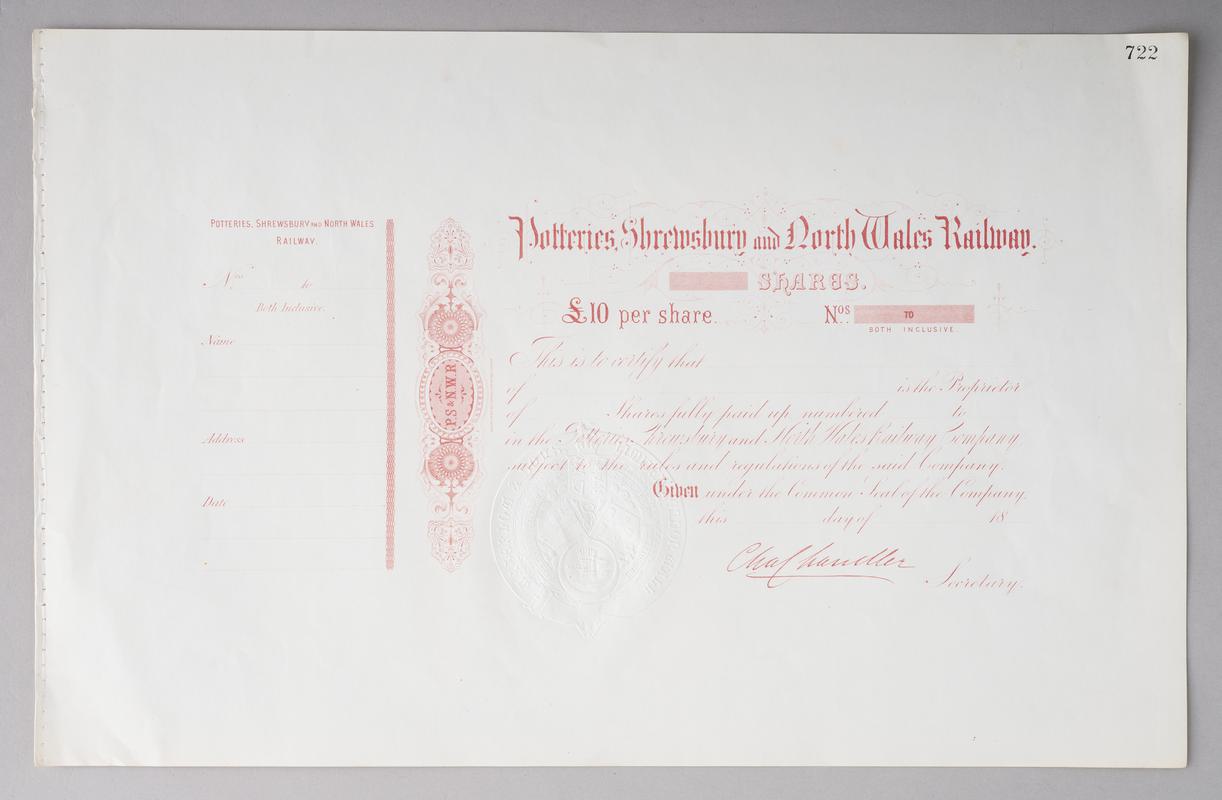 722
POTTERIES, SHREWSBURY AND NORTH WALES
RAILWAY.
Nos to
Both Inclusive.
Name
Address
Date
P.S & N.W.R
Potteries, Shrewsbury and North Wales Railway.
SHARES.
£10 per share. Nos TO
BOTH INCLUSIVE.
This is to certify that
of is the Proprietor
of Shares fully paid up numbered to
in the Potteries, Shrewsbury and North Wales Railway Company
subject to the rules and regulations of the said Company.
Given under the Common Seal of the Company,
this day of 18
Cha Chandler
Secretary.